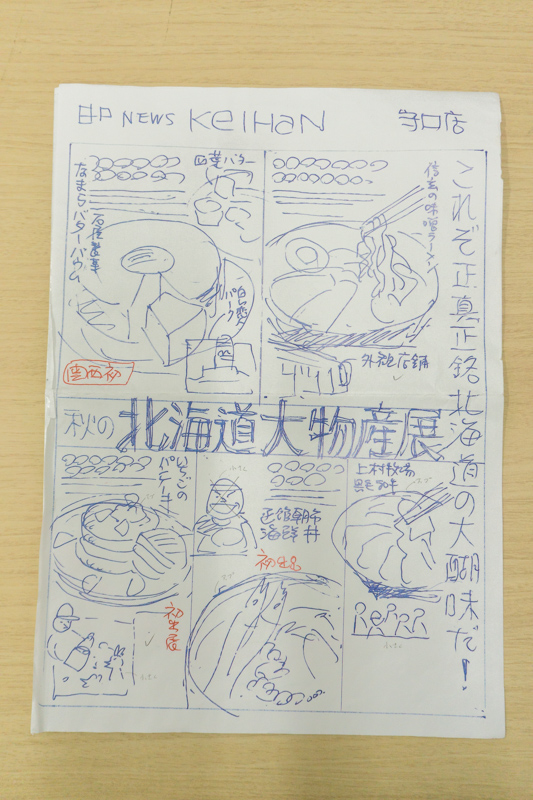 NEWS KEIHAN 守口店
これぞ正真正銘北海道の大醐味だ!
四葉バター
石屋製菓
なまらバターバウム
関西初
味噌ラーメン
外観店舗
秋の北海道大物産展
いちごの
パンケーキ
初出展
函館朝市
海鮮丼
初出品
上村牧場
黒毛和牛